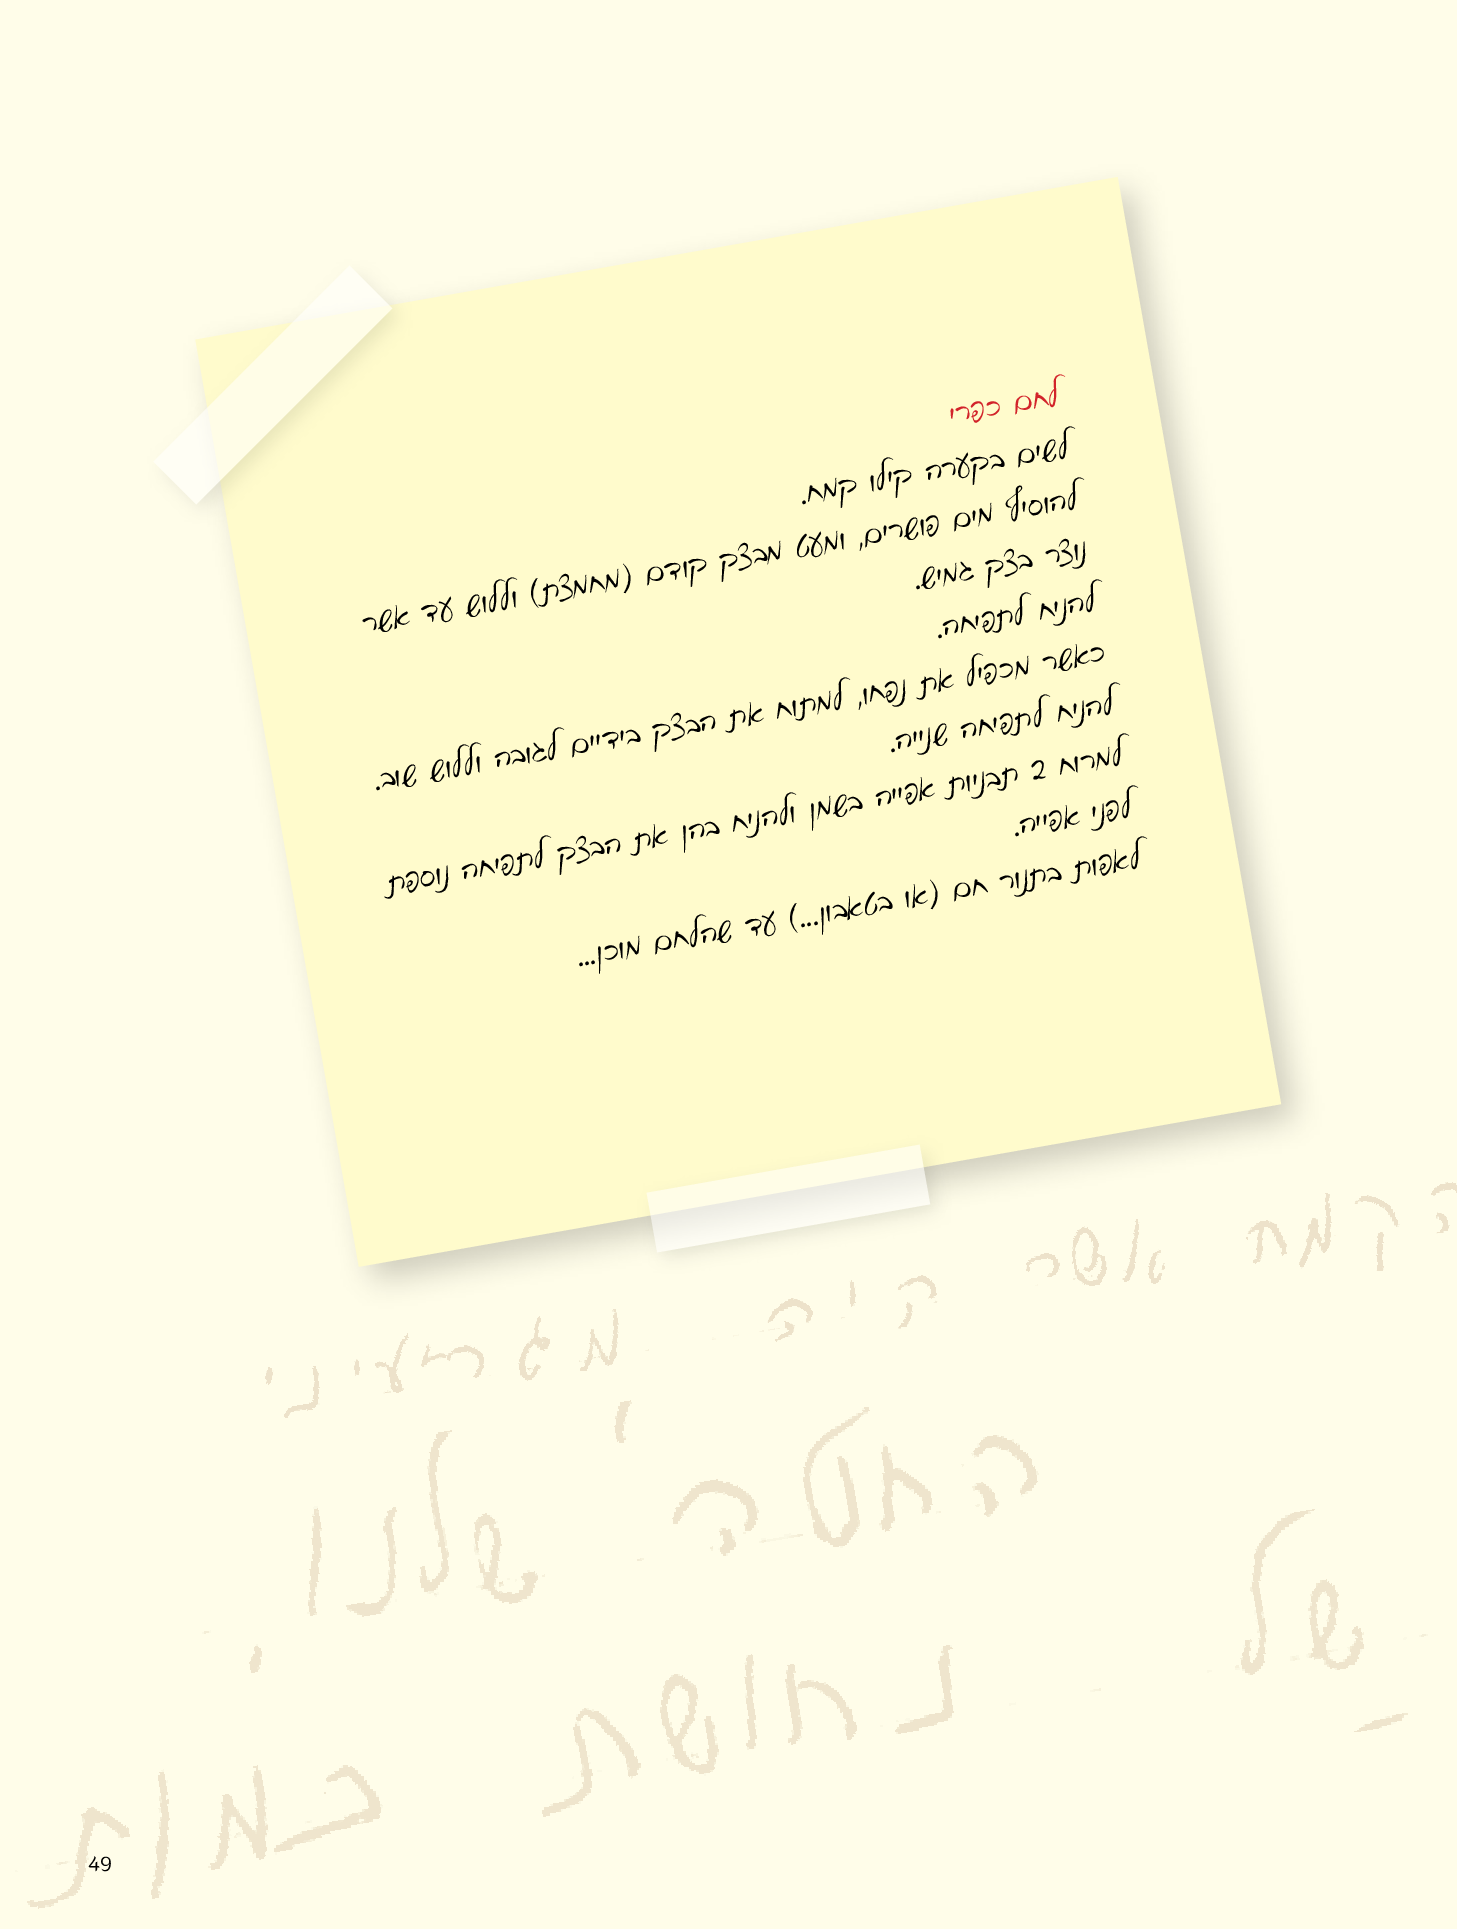 לחם כפרי
לשים בקערה קילו קמח.
להוסיף מים פושרים, ומעט מבצק קודם (מחמצת) וללוש עד אשר
נוצר בצק גמיש.
להניח לתפיחה.
כאשר מכפיל את נפחו, למתוח את הבצק בידיים לגובה וללוש שוב.
להניח לתפיחה שנייה.
למרוח 2 תבניות אפייה בשמן ולהניח בהן את הבצק לתפיחה נוספת
לפני אפייה.
לאפות בתנור חם (או בטאבון...) עד שהלחם מוכן...
הקמח אשר היה מגרעיני
החטה שלנו
של נחושת כמות
49